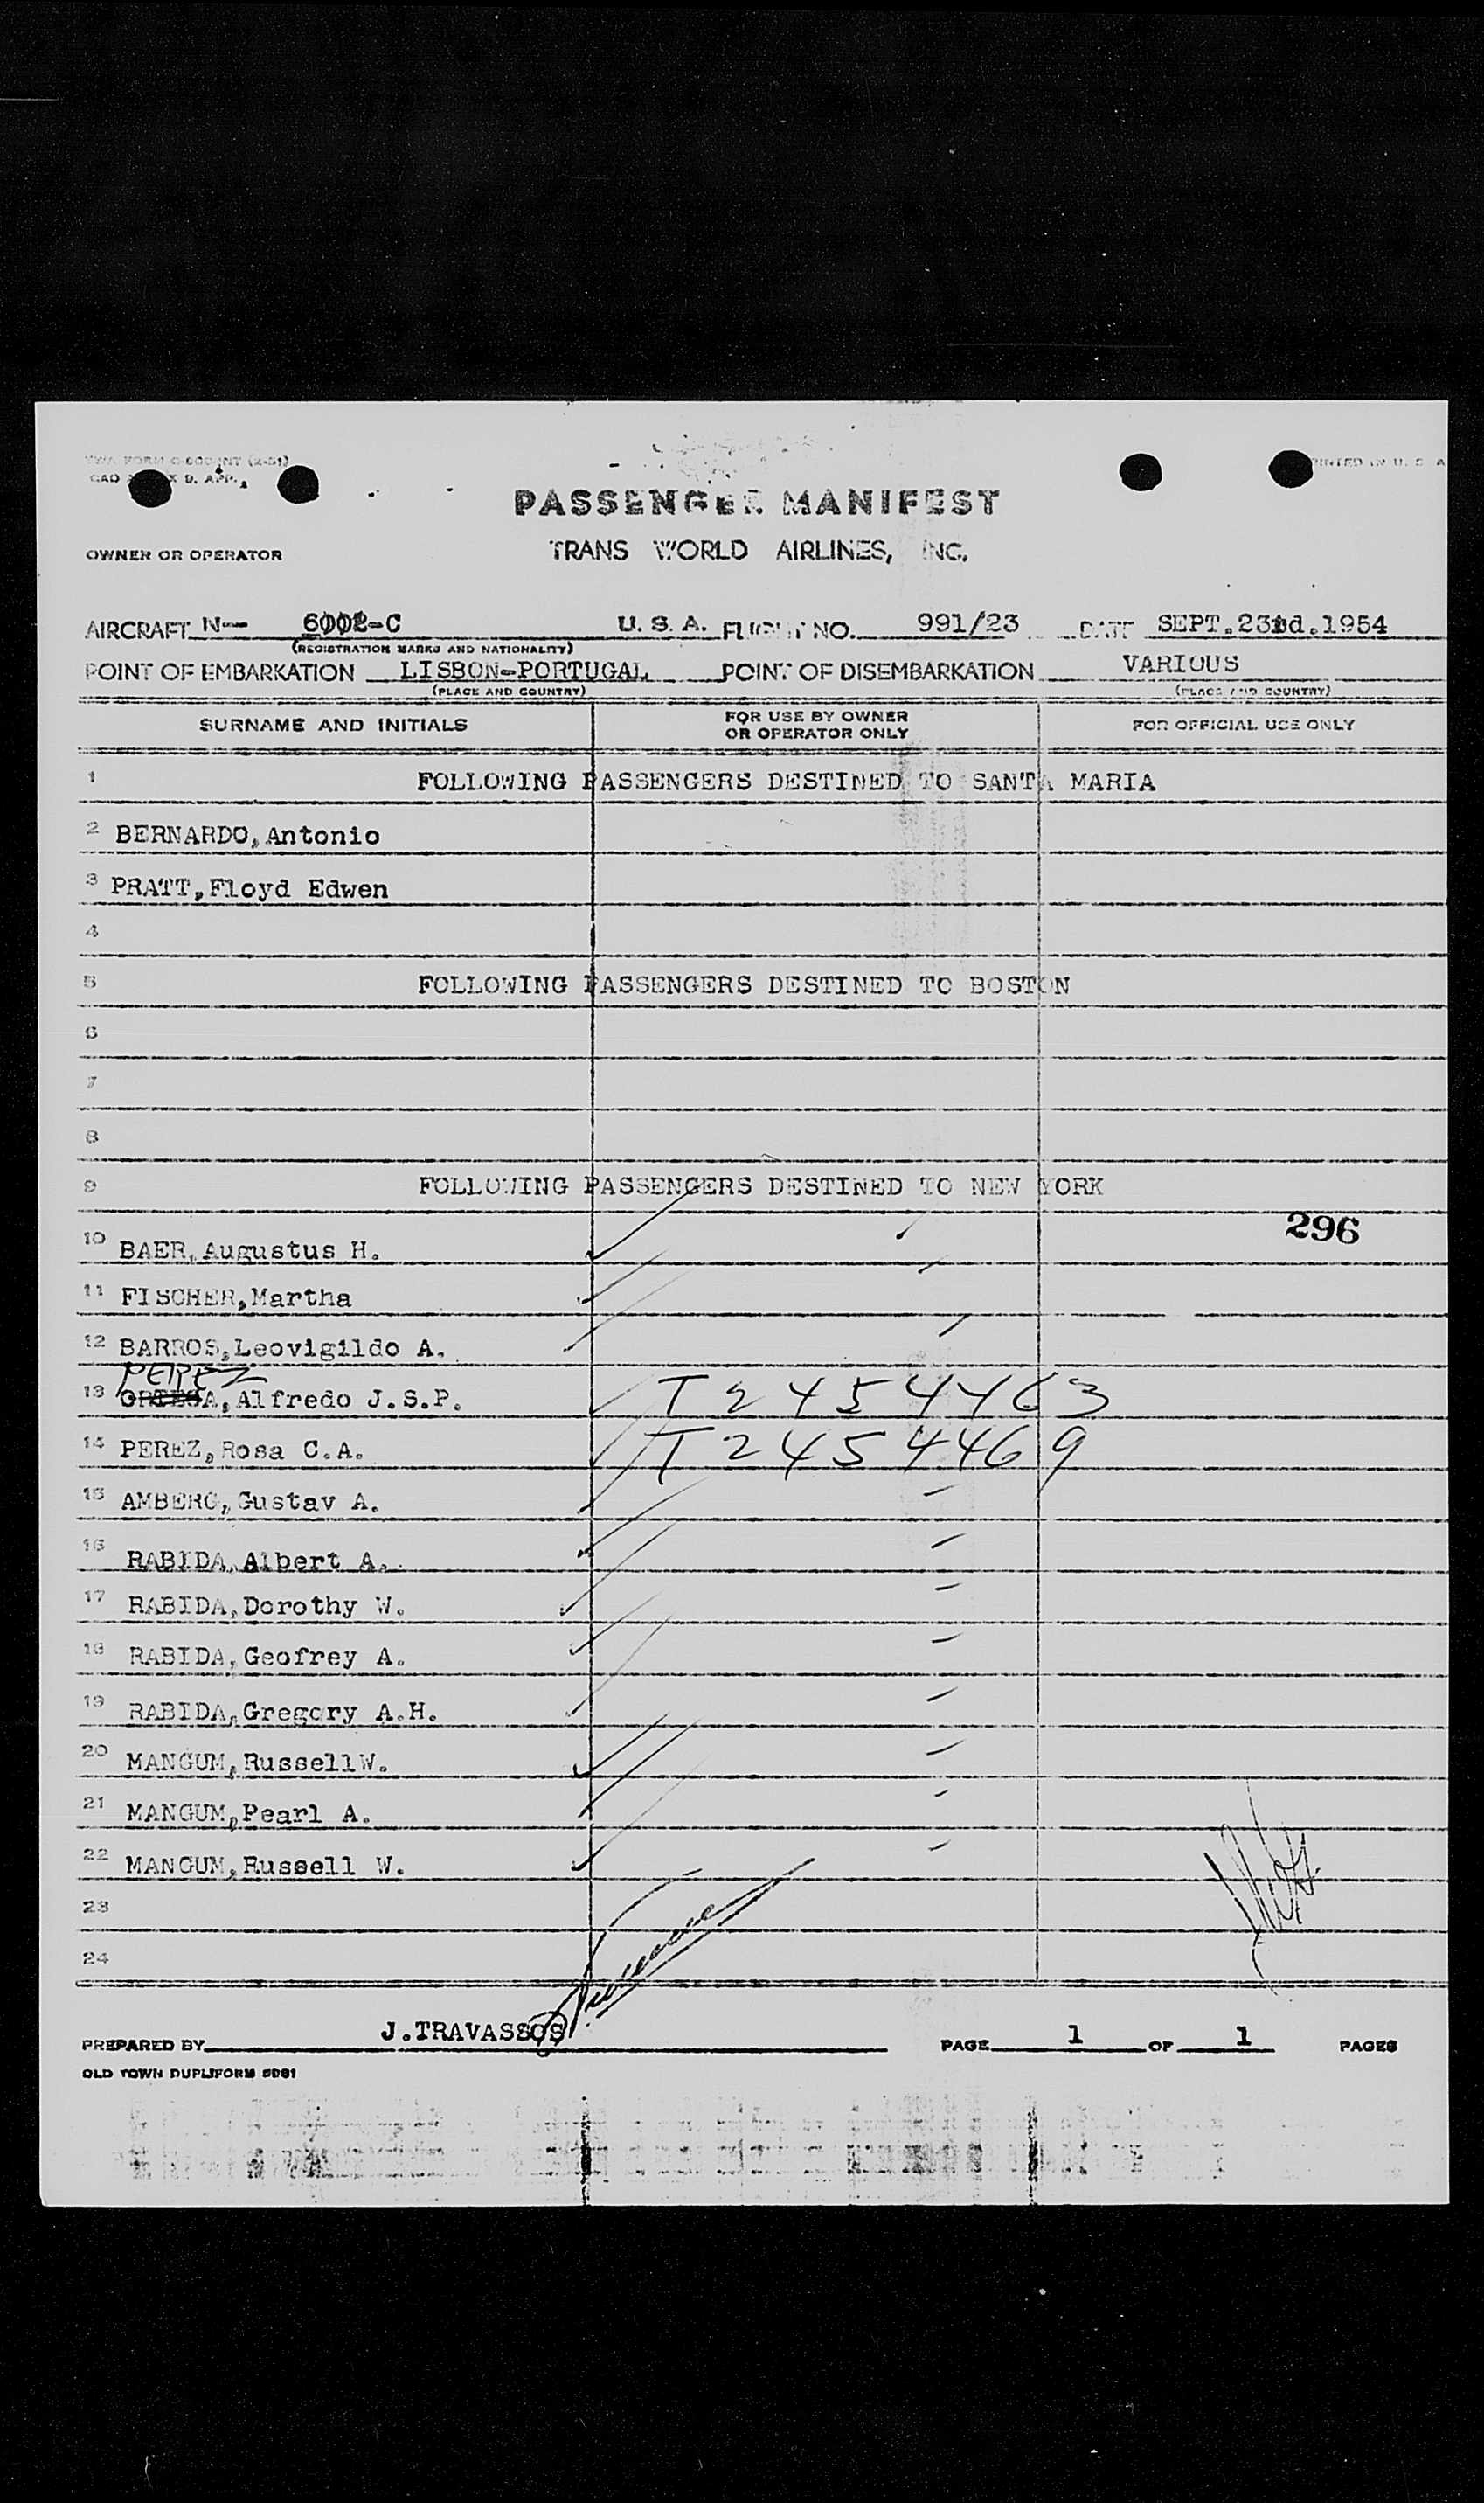 PRINTED IN U. S. A
PASSENGER MANIFEST
OWNER OR OPERATOR TRANS WORLD AIRLINES, INC.
AIRCRAFT N- 6002-C U. S. A. FLIGHT NO. 991/23 DATE SEPT.23rd.1954
(REGISTRATION MARKS AND NATIONALITY)
POINT OF EMBARKATION LISBON-PORTUGAL POINT OF DISEMBARKATION VARIOUS
(PLACE AND COUNTRY) (PLACE AND COUNTRY)
SURNAME AND INITIALS FOR USE BY OWNER OR OPERATOR ONLY FOR OFFICIAL USE ONLY
1 FOLLOWING PASSENGERS DESTINED TO SANTA MARIA
2 BERNARDO,Antonio
3 PRATT,Floyd Edwen
4
5 FOLLOWING PASSENGERS DESTINED TO BOSTON
6
7
8
9 FOLLOWING PASSENGERS DESTINED TO NEW YORK
296
10 BAER,Augustus H.
11 FISCHER,Martha
12 BARROS,Leovigildo A.
PEREZ
13 ORTEGA,Alfredo J.S.P. T2454463
14 PEREZ,Rosa C.A. T2454469
15 AMBERG,Gustav A.
16 RABIDA,Albert A.
17 RABIDA,Dorothy W.
18 RABIDA,Geofrey A.
19 RABIDA,Gregory A.H.
20 MANGUM,RussellW.
21 MANGUM,Pearl A.
22 MANGUM,Russell W.
23
24
PREPARED BY J.TRAVASSOS PAGE 1 OF 1 PAGES
OLD TOWN DUPLIFORM 5081